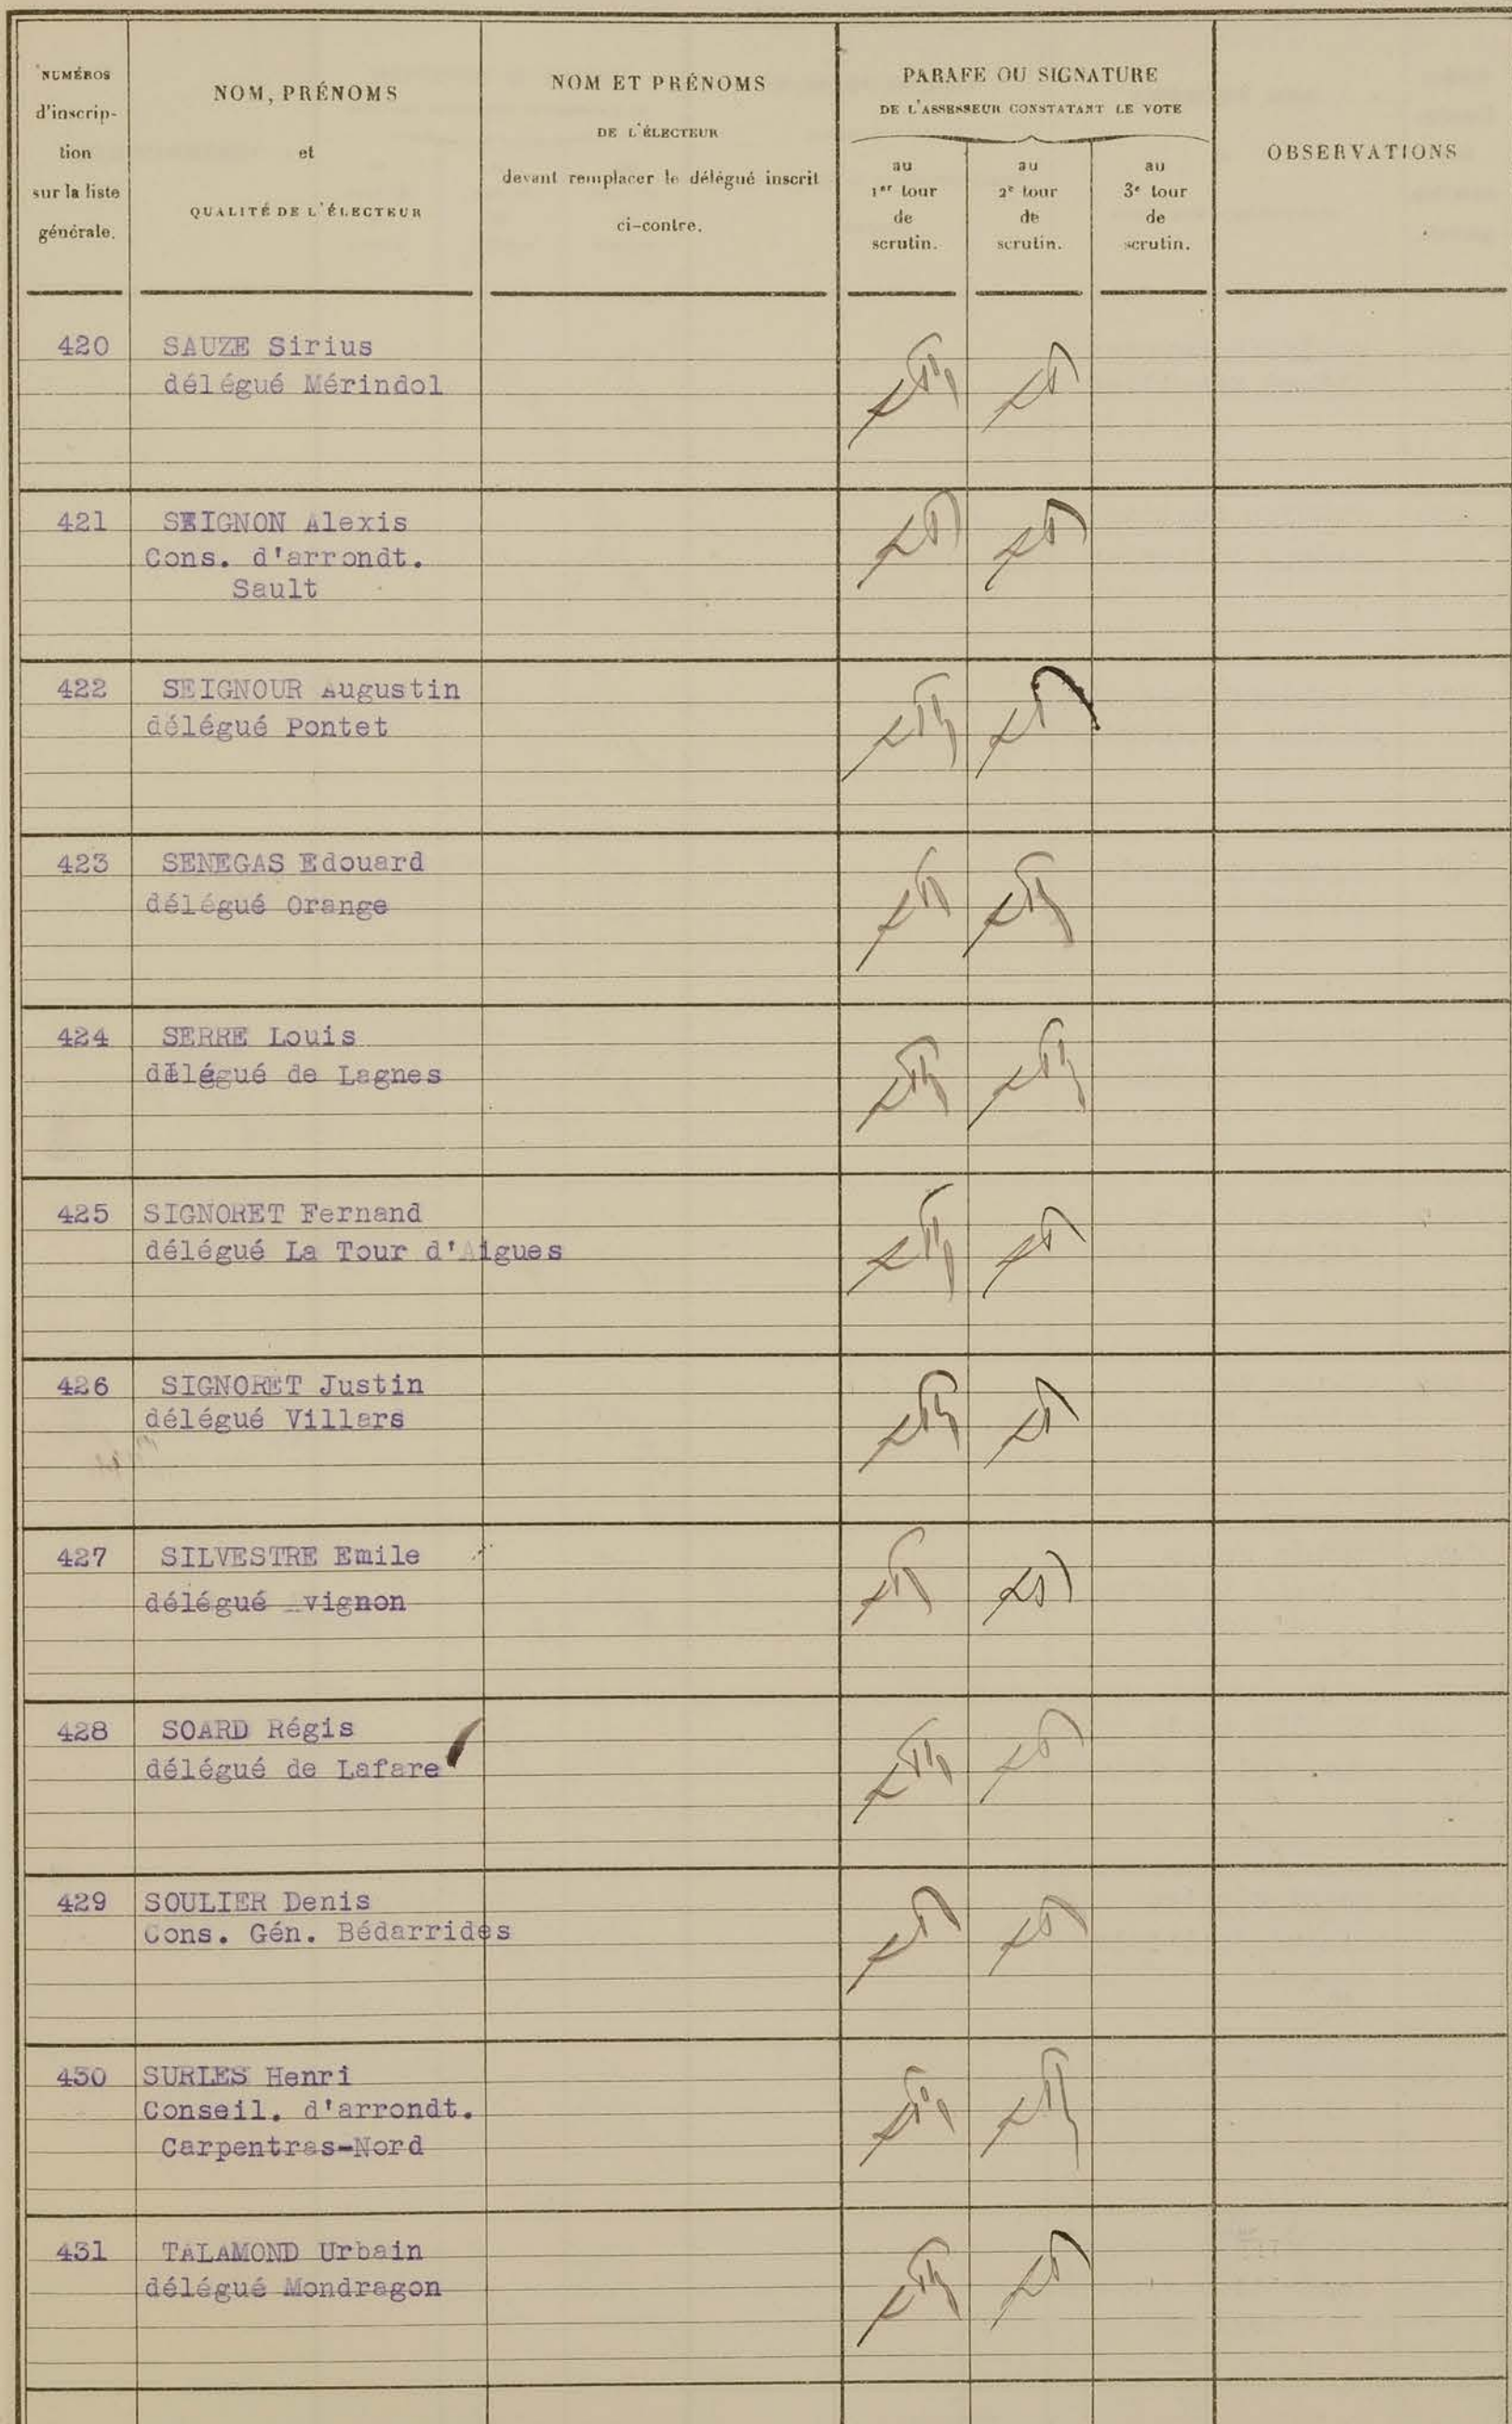 NUMÉROS
d'inscrip-
tion
sur la liste
générale.
NOM, PRÉNOMS
et
QUALITÉ DE L'ÉLECTEUR
NOM ET PRÉNOMS
DE L'ÉLECTEUR
devant remplacer le délégué inscrit
ci-contre.
PARAFE OU SIGNATURE
DE L'ASSESSEUR CONSTATANT LE VOTE
au
1er tour
de
scrutin.
au
2e tour
de
scrutin.
au
3e tour
de
scrutin.
OBSERVATIONS
420 SAUZE Sirius
délégué Mérindol
421 SEIGNON Alexis
Cons. d'arrondt.
Sault
422 SEIGNOUR Augustin
délégué Pontet
423 SENEGAS Edouard
délégué Orange
424 SERRE Louis
délégué de Lagnes
425 SIGNORET Fernand
délégué La Tour d'Aigues
426 SIGNORET Justin
délégué Villars
427 SILVESTRE Emile
délégué vignon
428 SOARD Régis
délégué de Lafare
429 SOULIER Denis
Cons. Gén. Bédarrides
430 SURLES Henri
Conseil. d'arrondt.
Carpentras-Nord
431 TALAMOND Urbain
délégué Mondragon